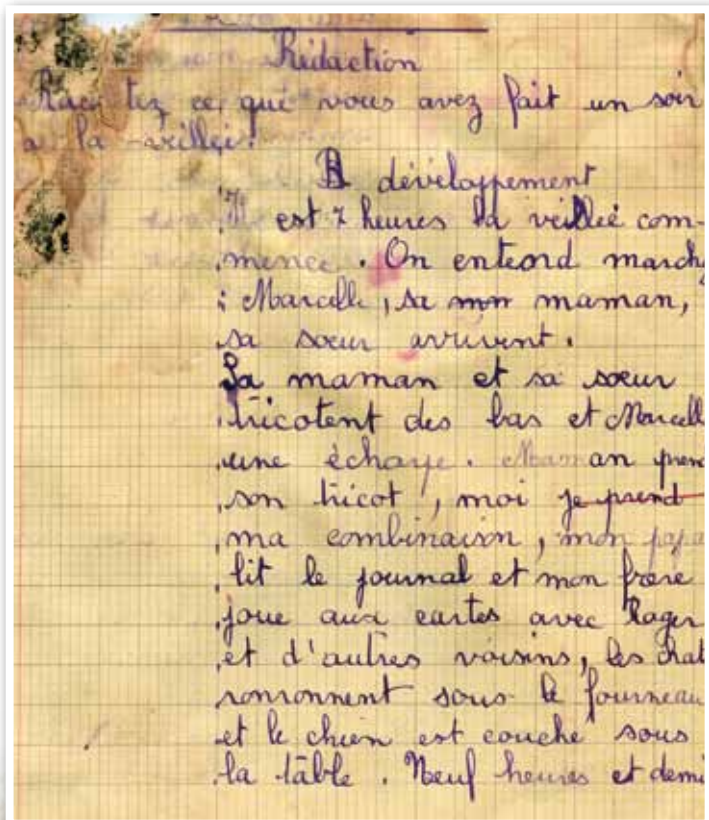 Rédaction
Racontez ce que vous avez fait un soir
à la veillée.
développement
Il est 7 heures la veillée com-
mence. On entend march
: Marcelle, sa mm maman,
sa soeur arrivent.
Sa maman et sa soeur
tricotent des bas et Marcell
une écharpe. Maman prend
son tricot, moi je prend
ma combinaison, mon papa
lit le journal et mon frère
joue aux cartes avec Roger
et d'autres voisins, les chat
ronronnent sous le fourneau
et le chien est couché sous
la table. Neuf heures et demi